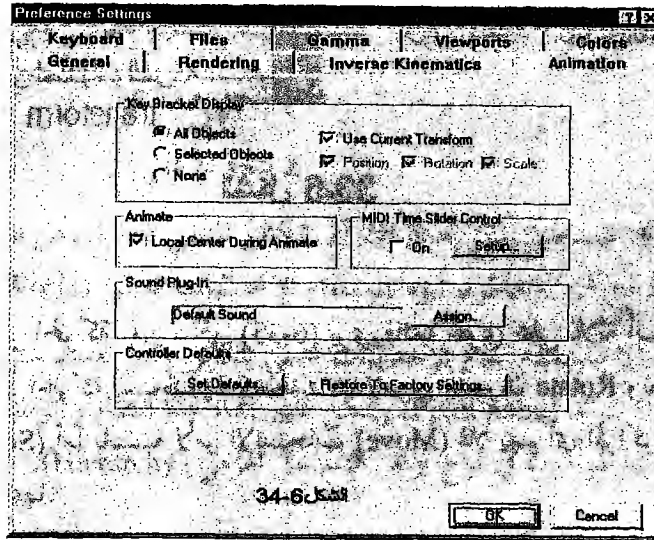 Preference Settings
Keyboard Files Gamma Viewports Colors
General Rendering Inverse Kinematics Animation
Key Bracket Display
All Objects
Selected Objects
None
Use Current Transform
Position Rotation Scale
Animate
Local Center During Animate
MIDI Time Slider Control
On Setup...
Sound Plug-In
Default Sound Assign...
Controller Defaults
Set Defaults... Restore To Factory Settings...
الشكل 6-34
OK Cancel